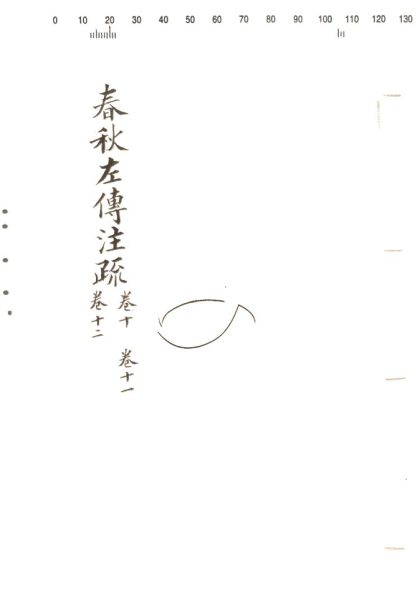 0 10 20 30 40 50 60 70 80 90 100 110 120 130
春秋左傳注疏
卷十 卷十一
卷十二